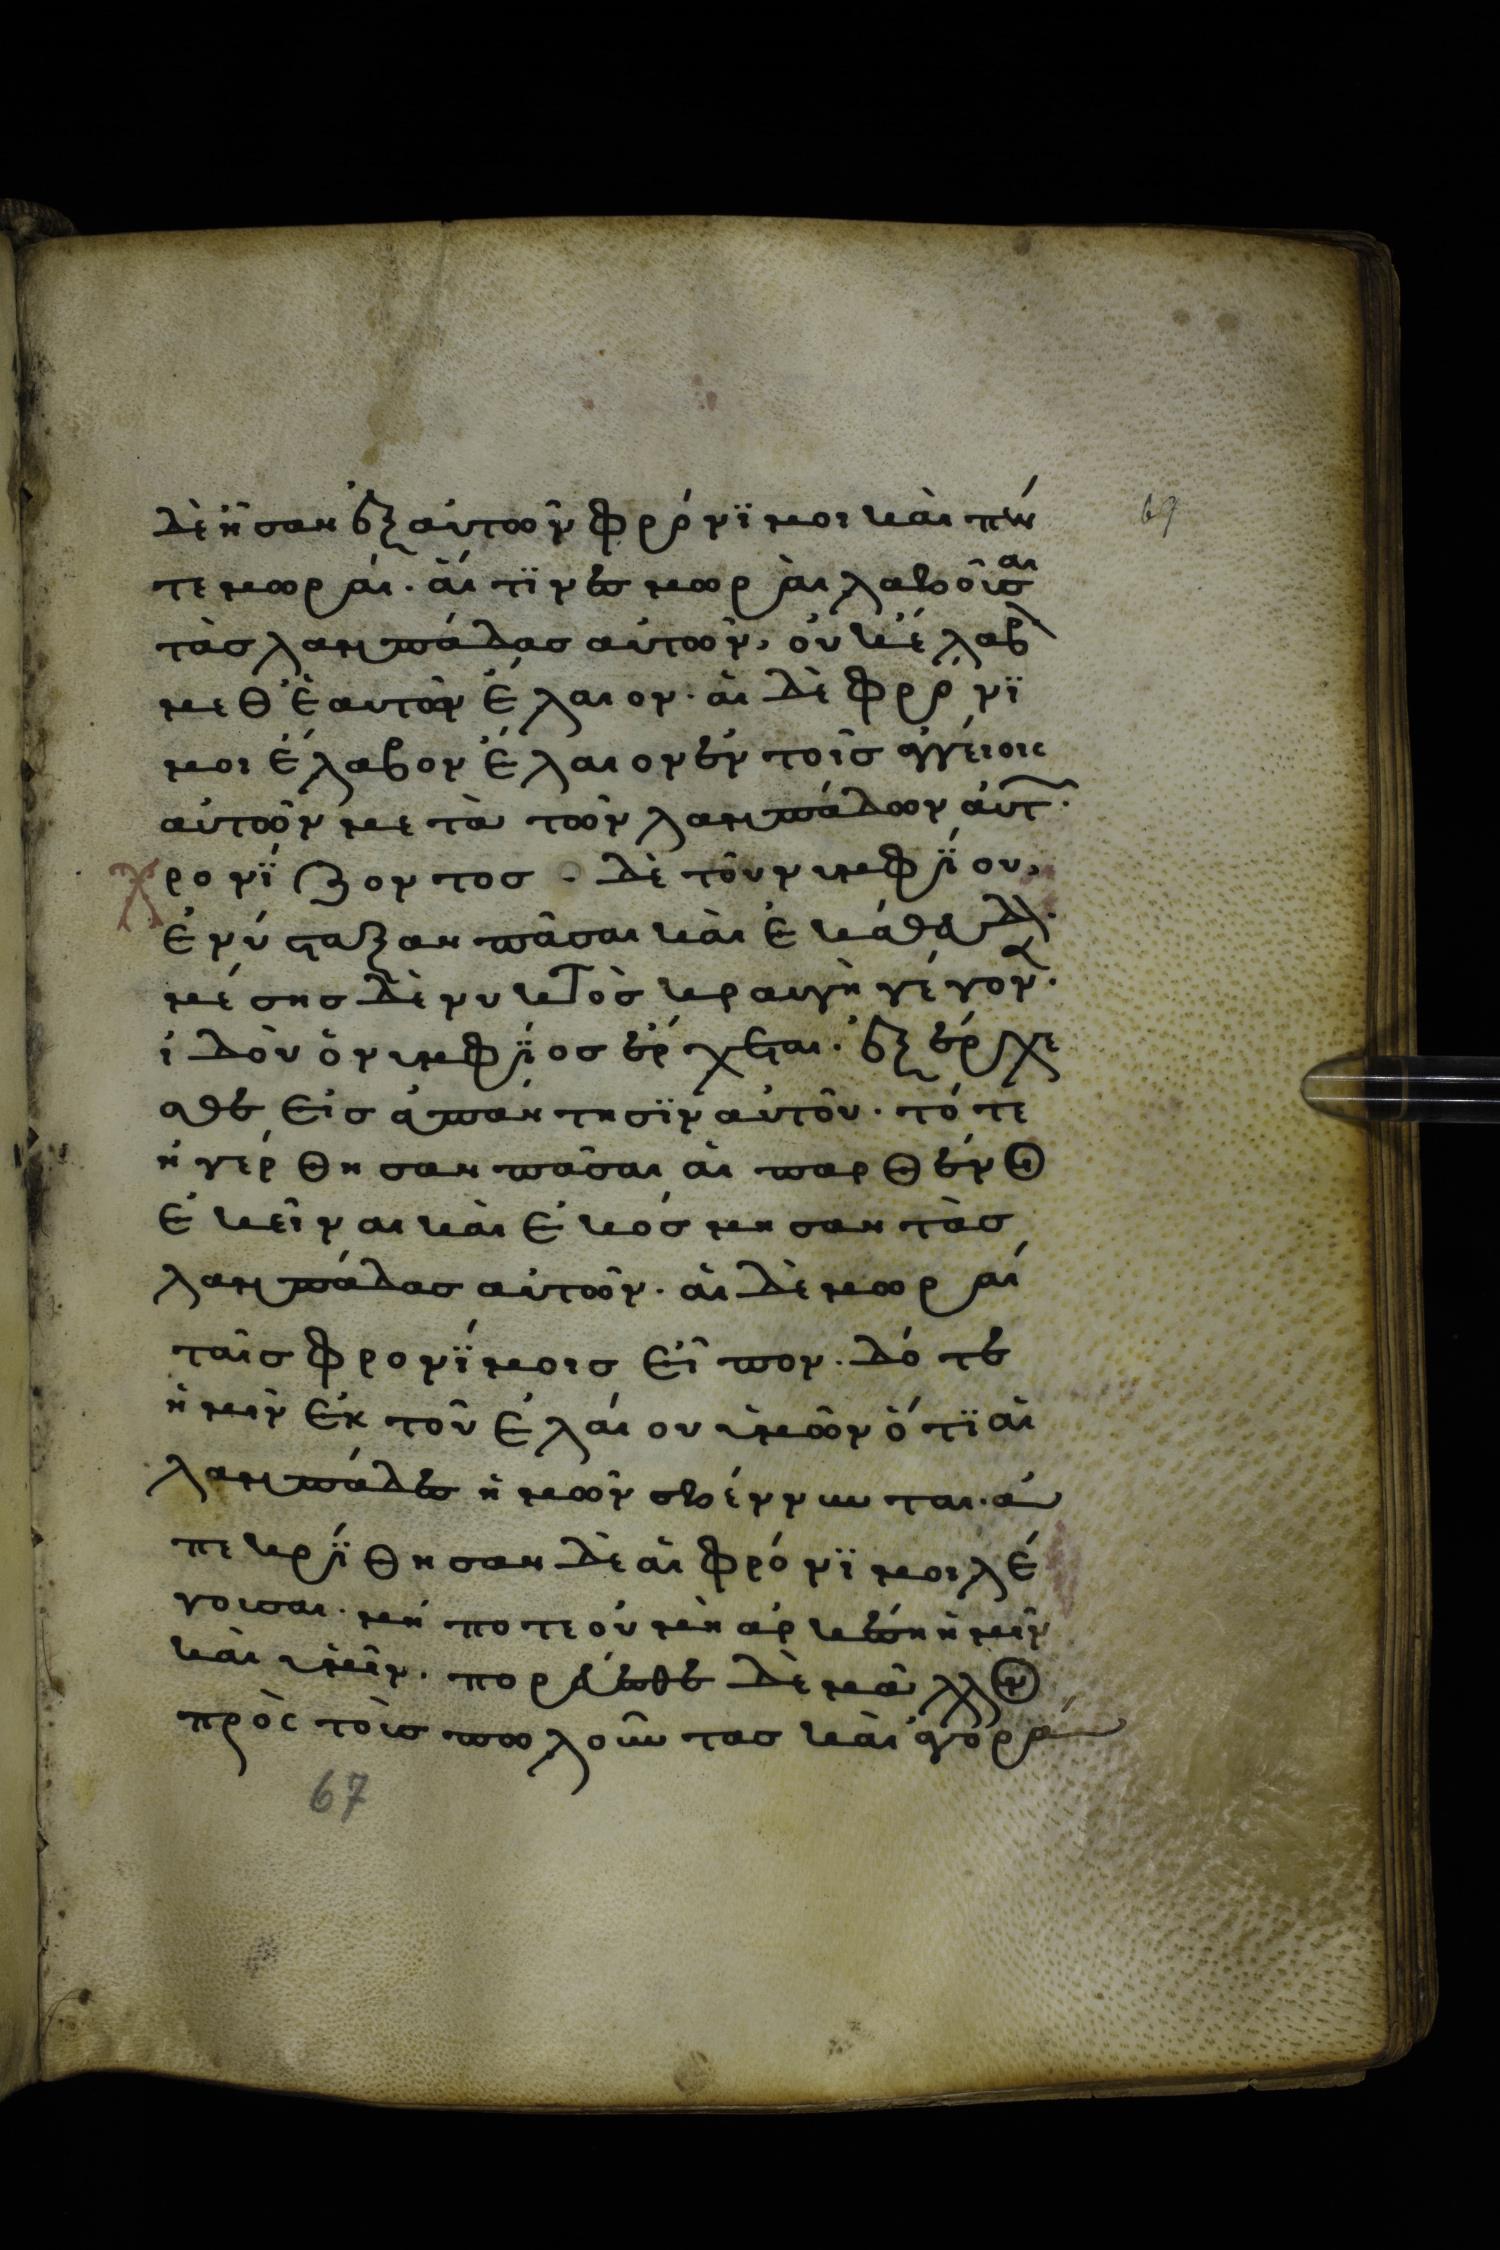 δὲ ἦσαν ἐξ αὐτῶν φρόνϊμοι καὶ πέν
τε μωραί. αἵ τϊνες μωραὶ λαβοῦσαι
τὰς λαμπάδας αὐτῶν, οὐκ ἔλαβ
μεθ' ἑαυτὸν ἔλαιον. αἱ δὲ φρόνϊ
μοι ἔλαβον ἔλαιον ἐν τοῖς ἀγγείοις
αὐτῶν μετὰ τῶν λαμπάδων αὐτ.
ρονΐζοντος. δὲ τοῦ νυμφΐου,
ἐνύσταξαν πᾶσαι καὶ ἐκάθευδ.
μέσης δὲ νυκτὸς κραυγὴ γέγον.
ἰδοὺ ὁ νυμφΐος ἔρχεται. ἐξέρχε
σθε εἰς ἀπάντησϊν αὐτοῦ. τότε
ἠγέρθησαν πᾶσαι αἱ παρθένοι
ἐκεῖναι καὶ ἐκόσμησαν τὰς
λαμπάδας αὐτῶν. αἱ δὲ μωραί
ταῖς φρονΐμοις εἶπον. δότε
ἡμῖν ἐκ τοῦ ἐλαίου ὑμῶν ὅτϊ αἱ
λαμπάδες ἡμῶν σβέννυνται. ἀ
πεκρΐθησαν δὲ αἱ φρόνϊμοι λέ
γουσαι. μήποτε οὐ μὴ ἀρκέσῃ ἡμῖν
καὶ ὑμῖν. πορεύεσθε δὲ μᾶλλον
πρὸς τοὺς πωλοῦντας καὶ ἀγορά
67
69